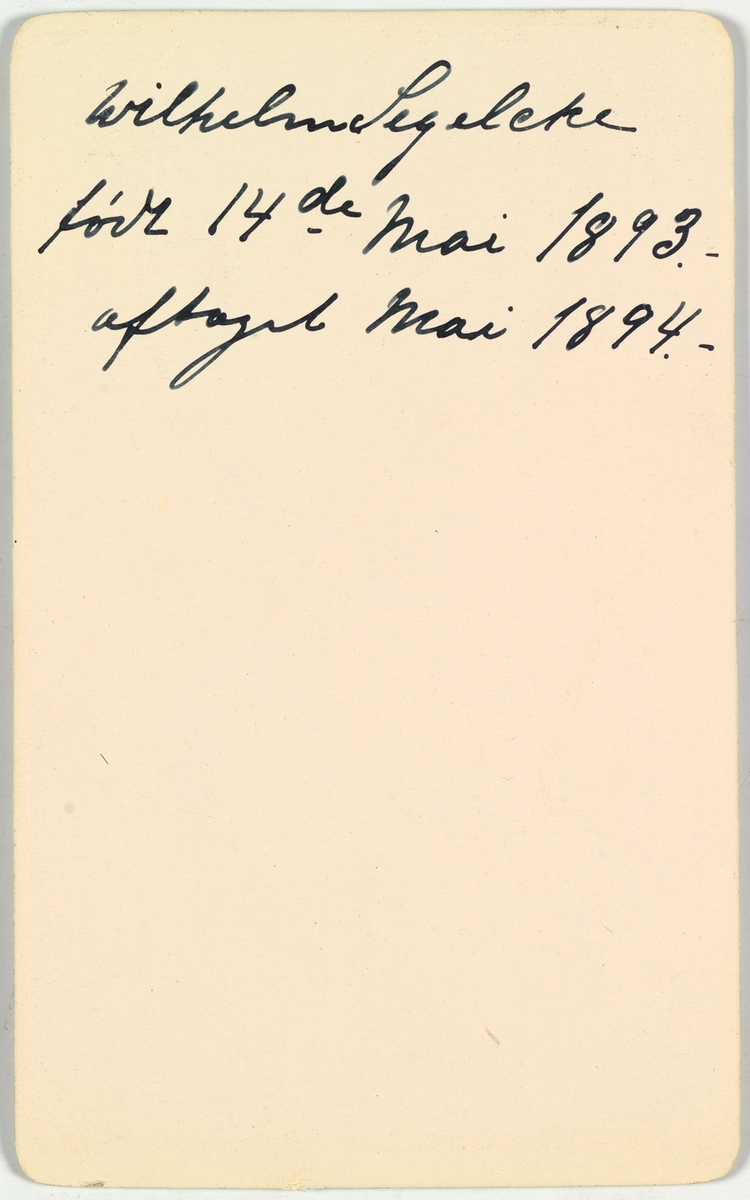 Wilhelm Segelcke
født 14de Mai 1893.-
aftaget Mai 1894.-